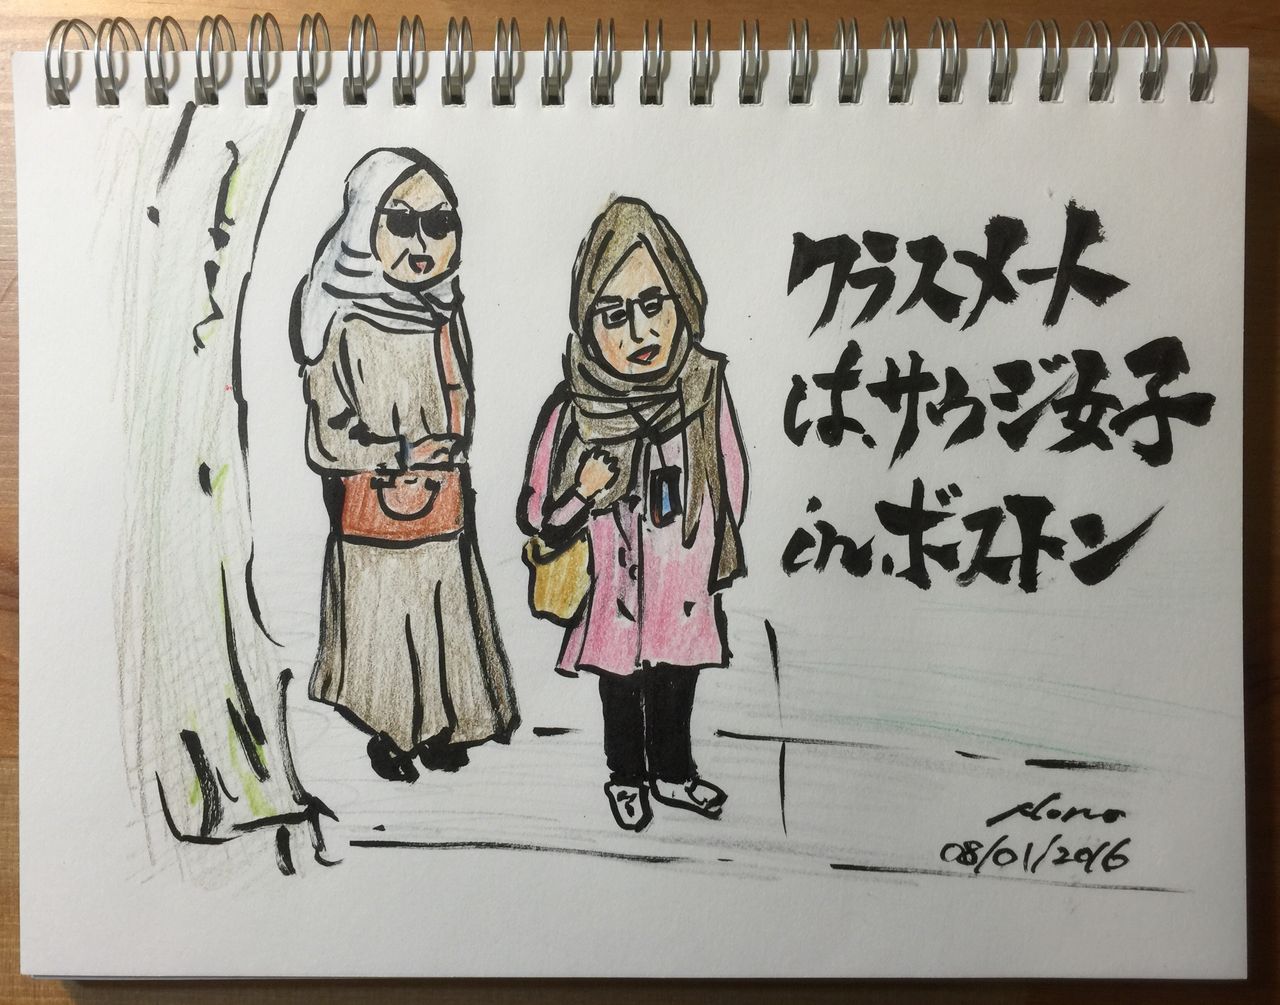 クラスメート
は、サウジ女子
in ボストン
08/01/2016